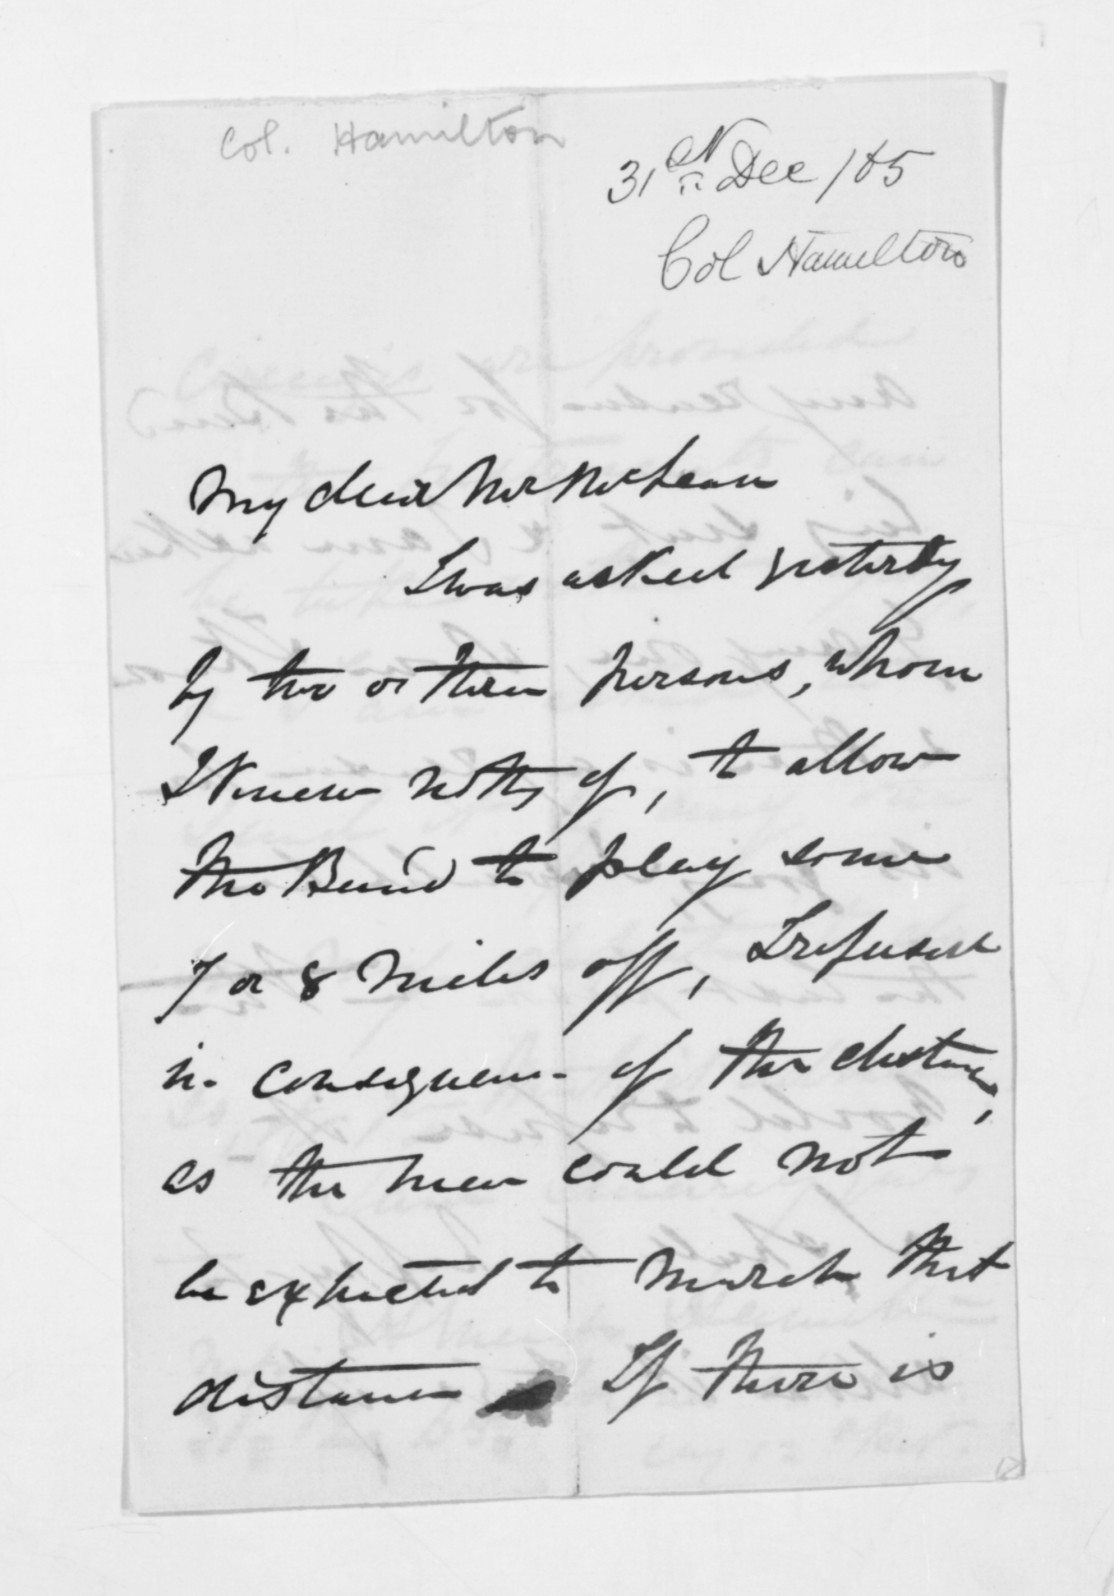 Col. Hamilton
31st Dec /65
Col Hamilton
My dear Mr McLean
I was asked yesterdy
by two or three persons, whom
I knew nothg of, to allow
the Band to play some
7 or 8 miles off, I refused
in consequence of the distance,
as the men could not
be expected to march that
distance If there is